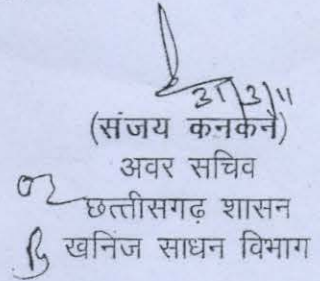 31/3/11
(संजय कनकने)
अवर सचिव
छत्तीसगढ़ शासन
खनिज साधन विभाग